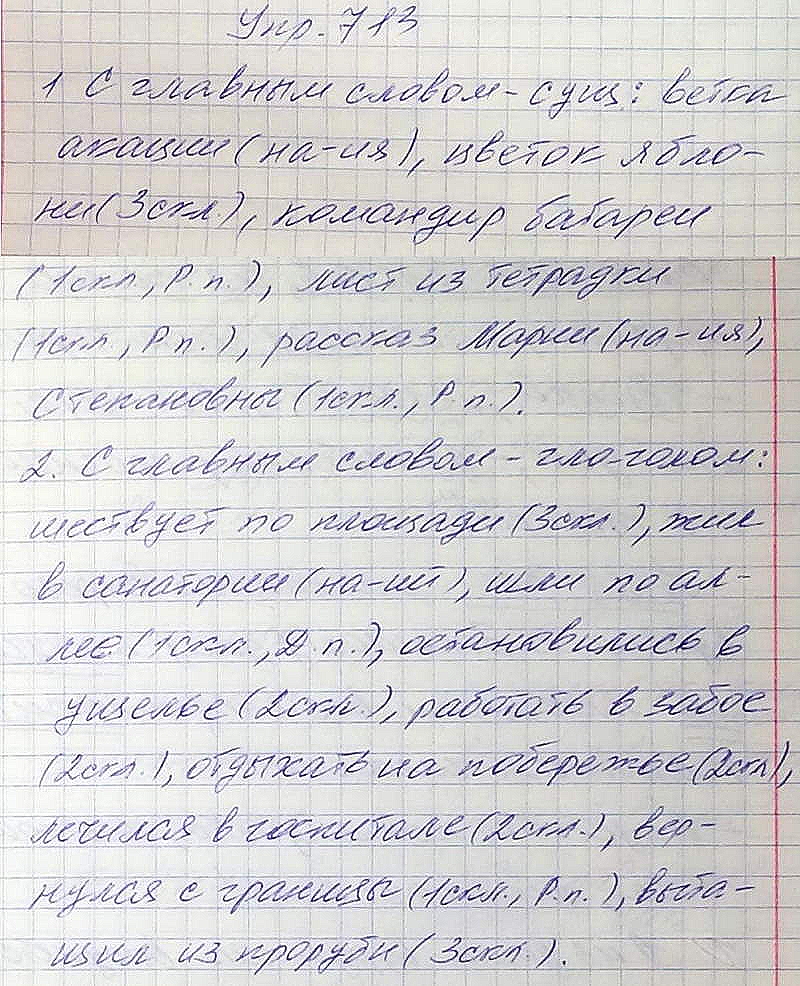 Упр. 713
1 С главным словом - сущ: ветка
акации (на-ия), цветок ябло-
ни (3скл.), командир батареи
(1скл., Р.п.), лист из тетрадки
(1скл., Р.п.), рассказ Марии (на-ия),
Степановны (1скл., Р.п.).
2. С главным словом - гла-голом:
шествует по площади (3скл.), жил
в санатории (на-ий), шли по ал-
лее (1скл., Д.п.), остановились в
ущелье (2скл.), работать в забое
(2скл.), отдыхать на побережье (2скл),
лечился в госпитале (2скл.), вер-
нулся с границы (1скл., Р.п.), выта-
щил из проруби (3скл.).